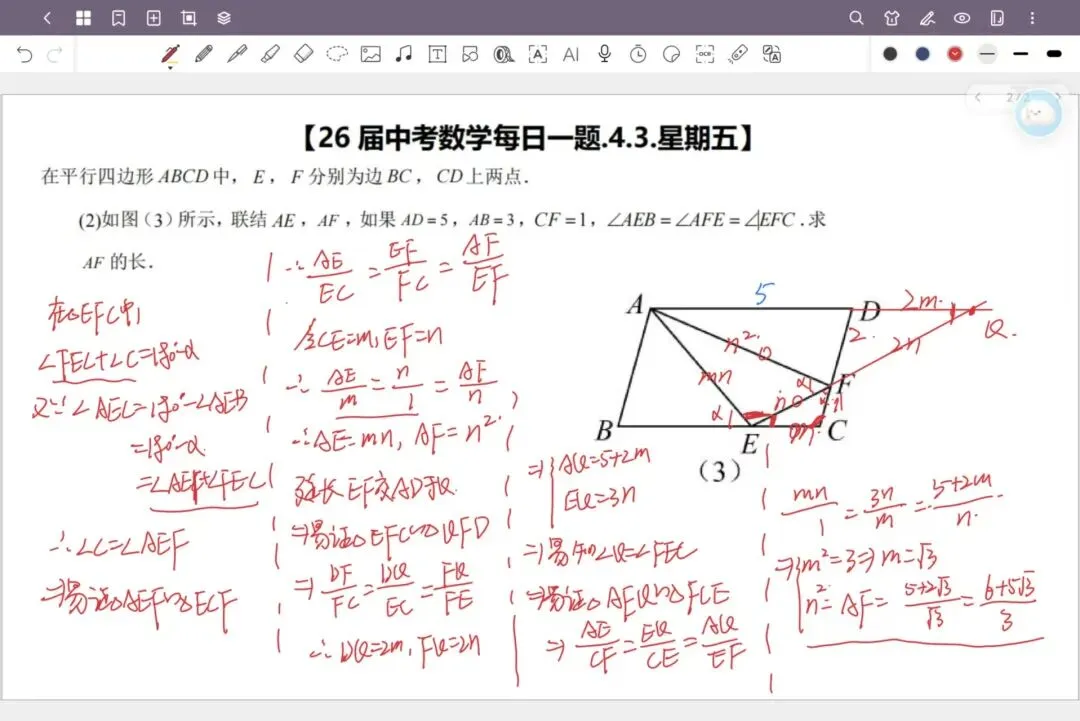 2/2
【26 届中考数学每日一题.4.3.星期五】
在平行四边形 ABCD 中，E，F 分别为边 BC，CD 上两点.
(2)如图（3）所示，联结 AE，AF，如果 AD=5，AB=3，CF=1，∠AEB=∠AFE=∠EFC.求
AF 的长.
在△EFC中,
∠FEC+∠C=180°-α
又∵∠AEC=180°-∠AEB
=180°-α
=∠AEF+∠FEC
∴∠C=∠AEF
⇒易证△AEF∽△ECF
∴AE/EC=EF/FC=AF/EF
令CE=m,EF=n
∴AE/m=n/1=AF/n
∴AE=mn, AF=n²
延长EF交AD于Q.
⇒易证△EFC∽△QFD
⇒DF/FC=DQ/EC=FQ/FE
∴DQ=2m, FQ=2n
⇒{AQ=5+2m
EQ=3n
⇒易知∠Q=∠FEC
⇒易证△AEQ∽△FCE
⇒AE/CF=EQ/CE=AQ/EF
A
5
D
2m
Q
2
2n
n²
mn
α
F
n
1
B
E
m
C
（3）
mn/1=3n/m=5+2m/n
⇒{m²=3⇒m=√3
n²=AF=5+2√3/√3=6+5√3/3